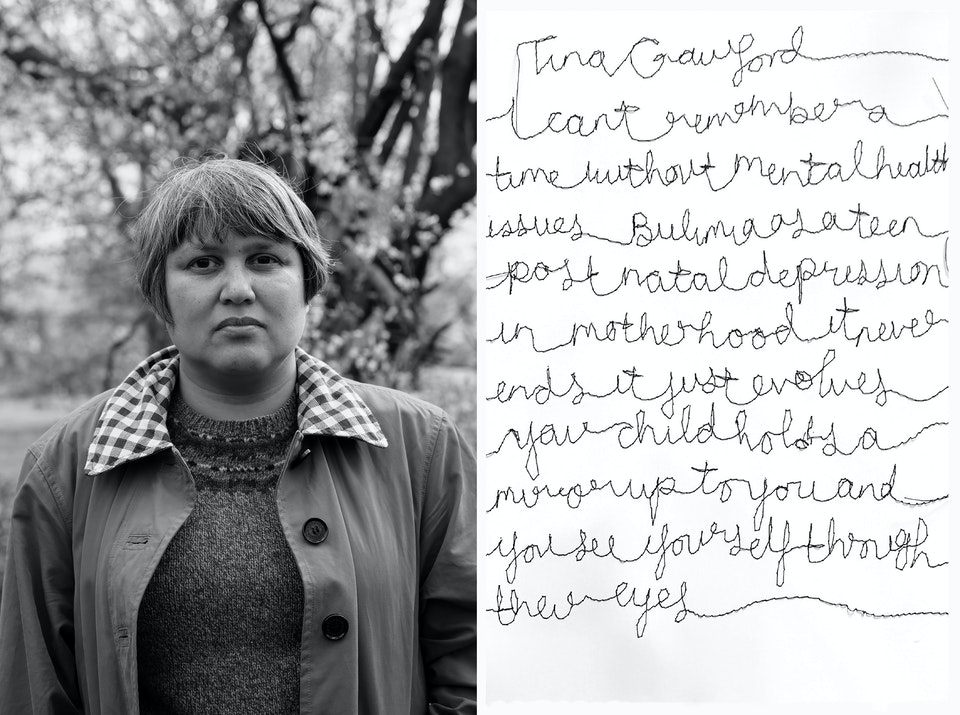 Tina Crawford
I cant remember a
time without mental health
issues Bulimia as a teen
post natal depression
in motherhood it never
ends it just evolves
your child holds a
mirror up to you and
you see yourself through
their eyes